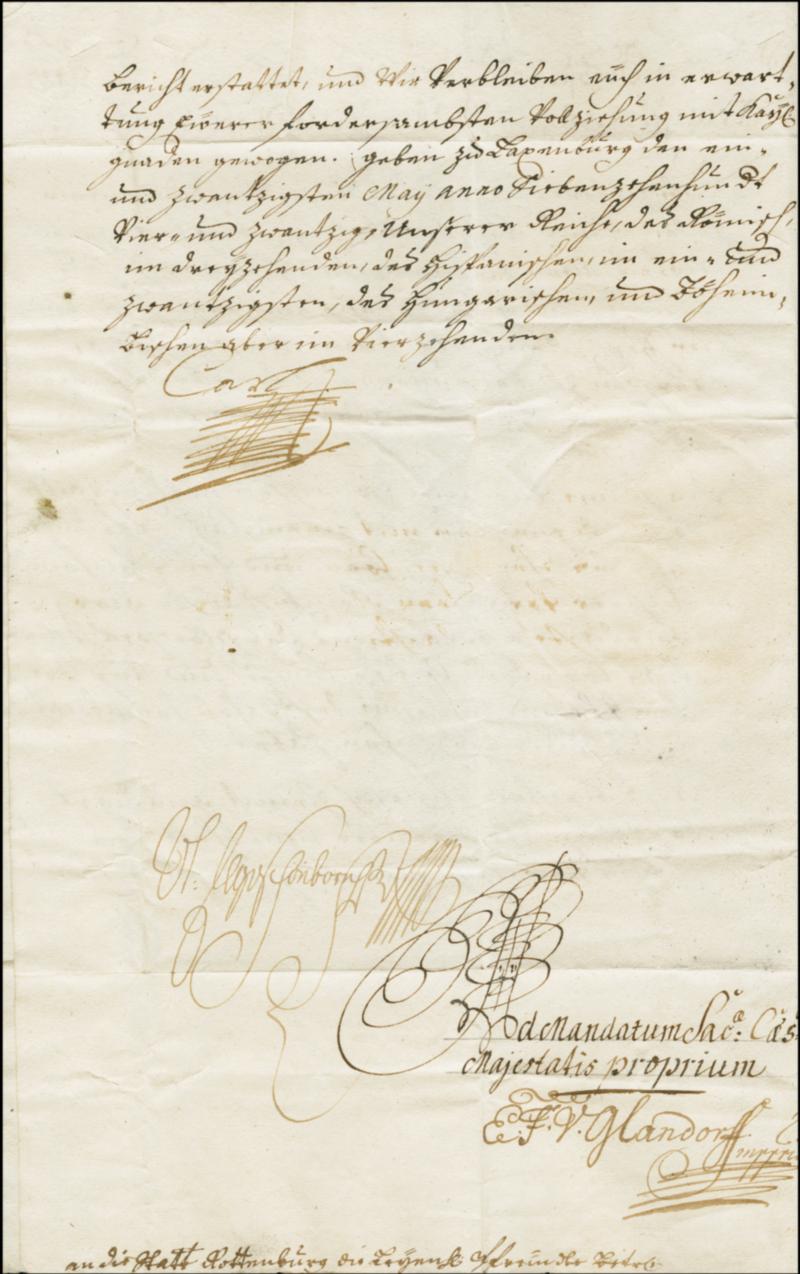 bericht erstattet, und Wir Verbleiben euch in erwart,
tung Ewerer fordersambsten Vollziehung mit Kayl
gnaden gewogen. geben zu Laxenburg den ein-
und zwantzigsten May anno Siebenzehenhundt
Vier- und zwantzig, Unserer Reiche, des Römisch,
im dreyzehenden, des Hispanischen, im ein- und
zwantzigsten, des Hungarischen, und Böheim,
bischen aber im Vierzehenden.
Carl
Vt.
Ad Mandatum Sac.ae Caes.
Majestatis proprium
E. F. V. Glandorff
mppria
an die Statt Rottenburg die